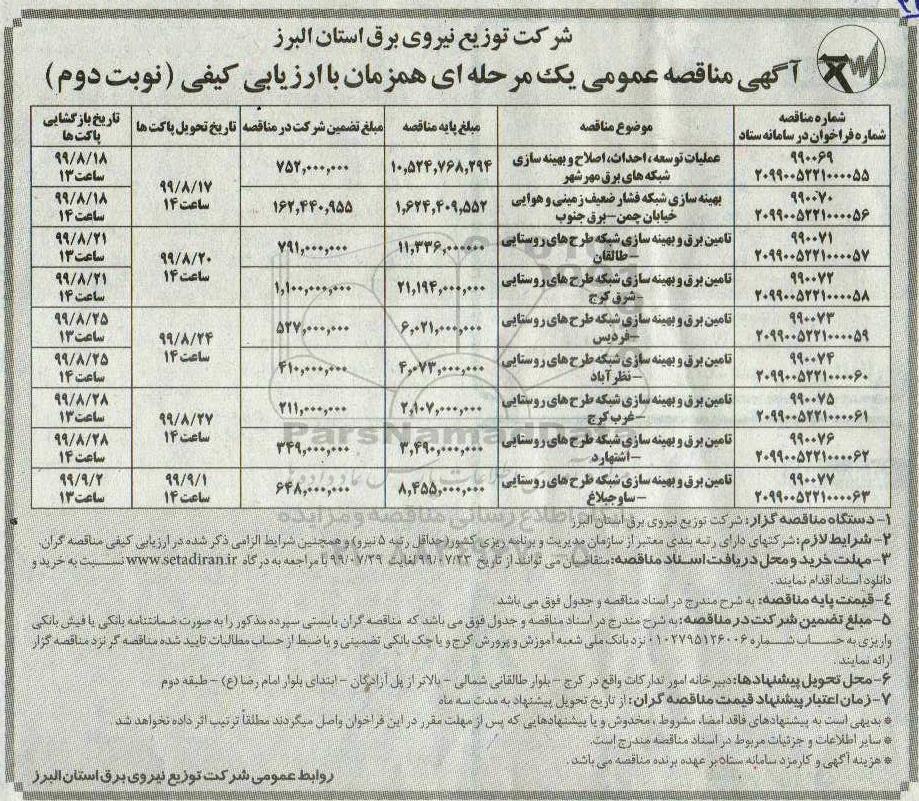 شرکت توزیع نیروی برق استان البرز
آگهی مناقصه عمومی یک مرحله ای همزمان با ارزیابی کیفی (نوبت دوم)
شماره مناقصه شماره فراخوان در سامانه ستاد | موضوع مناقصه | مبلغ پایه مناقصه | مبلغ تضمین شرکت در مناقصه | تاریخ تحویل پاکت ها | تاریخ بازگشایی پاکت ها
۹۹۰۰۶۹ ۲۰۹۹۰۰۵۲۲۱۰۰۰۰۵۵ | عملیات توسعه، احداث، اصلاح و بهینه سازی شبکه های برق مهرشهر | ۱۰,۵۲۴,۷۶۸,۲۹۴ | ۷۵۲,۰۰۰,۰۰۰ | ۹۹/۸/۱۷ ساعت ۱۴ | ۹۹/۸/۱۸ ساعت ۱۳
۹۹۰۰۷۰ ۲۰۹۹۰۰۵۲۲۱۰۰۰۰۵۶ | بهینه سازی شبکه فشار ضعیف زمینی و هوایی خیابان چمن-برق جنوب | ۱,۶۲۴,۴۰۹,۵۵۲ | ۱۶۲,۴۴۰,۹۵۵ | ۹۹/۸/۱۸ ساعت ۱۴
۹۹۰۰۷۱ ۲۰۹۹۰۰۵۲۲۱۰۰۰۰۵۷ | تامین برق و بهینه سازی شبکه طرح های روستایی -طالقان | ۱۱,۳۳۶,۰۰۰,۰۰۰ | ۷۹۱,۰۰۰,۰۰۰ | ۹۹/۸/۲۰ ساعت ۱۴ | ۹۹/۸/۲۱ ساعت ۱۳
۹۹۰۰۷۲ ۲۰۹۹۰۰۵۲۲۱۰۰۰۰۵۸ | تامین برق و بهینه سازی شبکه طرح های روستایی -شرق کرج | ۲۱,۱۹۴,۰۰۰,۰۰۰ | ۱,۱۰۰,۰۰۰,۰۰۰ | ۹۹/۸/۲۱ ساعت ۱۴
۹۹۰۰۷۳ ۲۰۹۹۰۰۵۲۲۱۰۰۰۰۵۹ | تامین برق و بهینه سازی شبکه طرح های روستایی -فردیس | ۶,۰۲۱,۰۰۰,۰۰۰ | ۵۲۷,۰۰۰,۰۰۰ | ۹۹/۸/۲۴ ساعت ۱۴ | ۹۹/۸/۲۵ ساعت ۱۳
۹۹۰۰۷۴ ۲۰۹۹۰۰۵۲۲۱۰۰۰۰۶۰ | تامین برق و بهینه سازی شبکه طرح های روستایی -نظرآباد | ۴,۰۷۳,۰۰۰,۰۰۰ | ۴۱۰,۰۰۰,۰۰۰ | ۹۹/۸/۲۵ ساعت ۱۴
۹۹۰۰۷۵ ۲۰۹۹۰۰۵۲۲۱۰۰۰۰۶۱ | تامین برق و بهینه سازی شبکه طرح های روستایی -غرب کرج | ۲,۱۰۷,۰۰۰,۰۰۰ | ۲۱۱,۰۰۰,۰۰۰ | ۹۹/۸/۲۷ ساعت ۱۴ | ۹۹/۸/۲۸ ساعت ۱۳
۹۹۰۰۷۶ ۲۰۹۹۰۰۵۲۲۱۰۰۰۰۶۲ | تامین برق و بهینه سازی شبکه طرح های روستایی -اشتهارد | ۳,۴۹۰,۰۰۰,۰۰۰ | ۳۴۹,۰۰۰,۰۰۰ | ۹۹/۸/۲۸ ساعت ۱۴
۹۹۰۰۷۷ ۲۰۹۹۰۰۵۲۲۱۰۰۰۰۶۳ | تامین برق و بهینه سازی شبکه طرح های روستایی -ساوجبلاغ | ۸,۴۵۵,۰۰۰,۰۰۰ | ۶۴۸,۰۰۰,۰۰۰ | ۹۹/۹/۱ ساعت ۱۴ | ۹۹/۹/۲ ساعت ۱۳
۱- دستگاه مناقصه گزار: شرکت توزیع نیروی برق استان البرز
۲- شرایط لازم: شرکتهای دارای رتبه بندی معتبر از سازمان مدیریت و برنامه ریزی کشور(حداقل رتبه ۵ نیرو) و همچنین شرایط الزامی ذکر شده در ارزیابی کیفی مناقصه گران.
۳- مهلت خرید و محل دریافت اسناد مناقصه: متقاضیان می توانند از تاریخ ۹۹/۰۷/۲۳ لغایت ۹۹/۰۷/۲۹ با مراجعه به درگاه www.setadiran.ir نسبت به خرید و
دانلود اسناد اقدام نمایند.
۴- قیمت پایه مناقصه: به شرح مندرج در اسناد مناقصه و جدول فوق می باشد.
۵- مبلغ تضمین شرکت در مناقصه: به شرح مندرج در اسناد مناقصه و جدول فوق می باشد که مناقصه گران بایستی سپرده مذکور را به صورت ضمانتنامه بانکی یا فیش بانکی
واریزی به حساب شماره ۰۱۰۲۷۹۵۱۲۶۰۰۶ نزد بانک ملی شعبه آموزش و پرورش کرج و یا چک بانکی تضمینی و یا ضبط از حساب مطالبات تایید شده مناقصه گر نزد مناقصه گزار
ارائه نمایند.
۶- محل تحویل پیشنهادها: دبیرخانه امور تدارکات واقع در کرج - بلوار طالقانی شمالی - بالاتر از پل آزادگان - ابتدای بلوار امام رضا (ع) - طبقه دوم
۷- زمان اعتبار پیشنهاد قیمت مناقصه گران: از تاریخ تحویل پیشنهاد به مدت سه ماه
* بدیهی است به پیشنهادهای فاقد امضاء، مشروط، مخدوش و یا پیشنهادهایی که پس از مهلت مقرر در این فراخوان واصل میگردند مطلقاً ترتیب اثر داده نخواهد شد
* سایر اطلاعات و جزئیات مربوط در اسناد مناقصه مندرج است.
* هزینه آگهی و کارمزد سامانه ستاد بر عهده برنده مناقصه می باشد.
روابط عمومی شرکت توزیع نیروی برق استان البرز
ParsNamadData